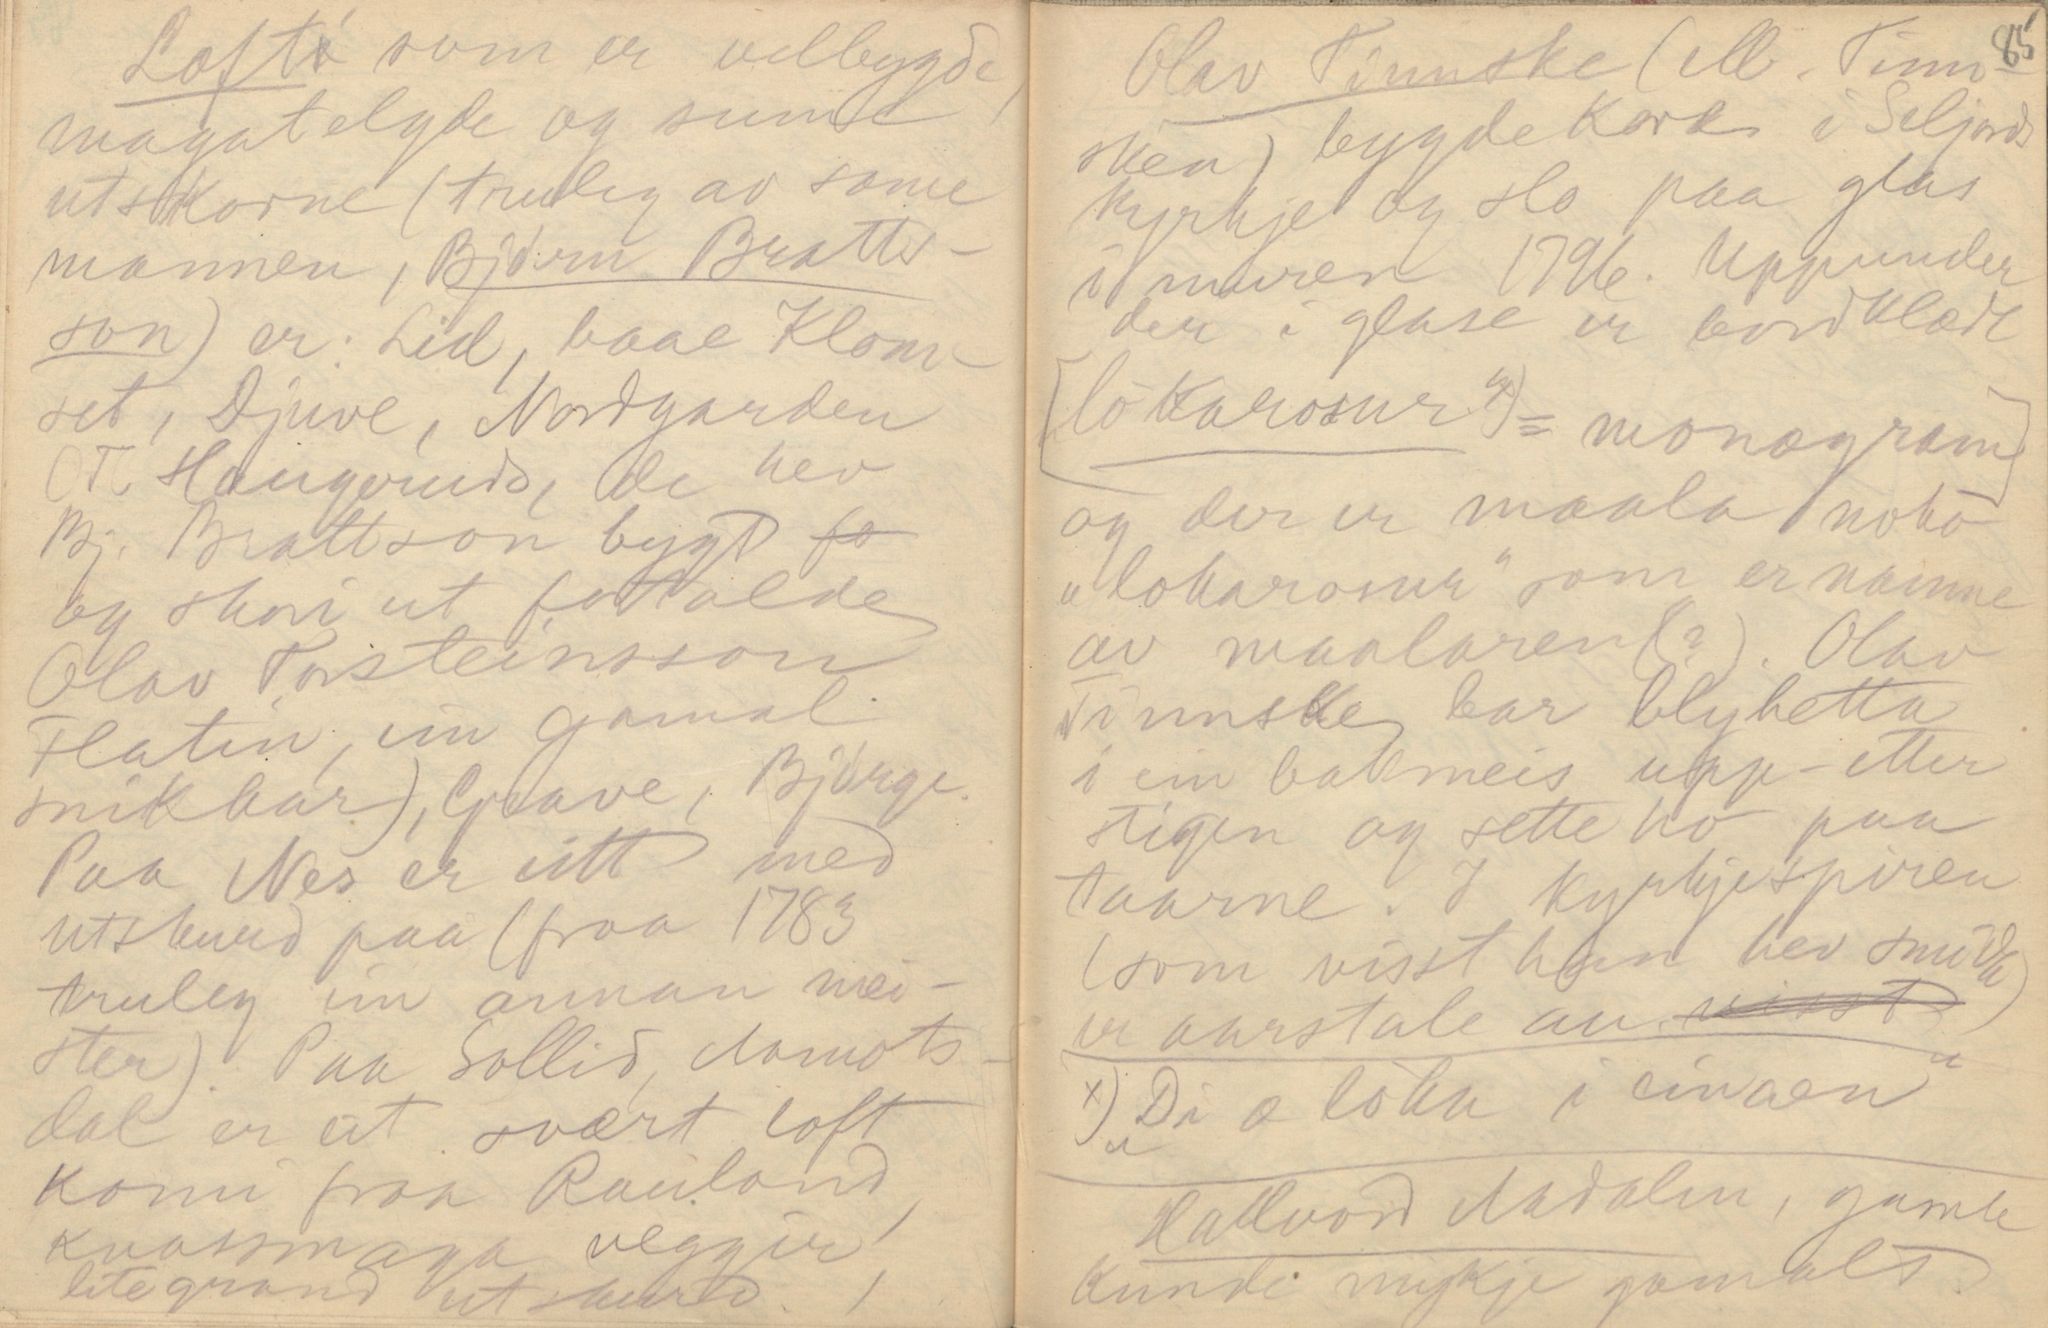 Lofti som er velbygde,
magatelgde og sume
utskorne (truleg av same
mannen, Bjørn Bratts-
son) er: Lid, baae Klom-
set, Djuve, Nordgarden
Haugerud, de hev
Bj. Brattson bygt fo
og skori ut fortalde
Olav Torsteinsson
Flatin, ein gamal
snikkar), Grave, Bjørge.
Paa Nes er eitt med
utskurd paa (fraa 1783
truleg ein annan mei-
ster). Paa Sollid, Aamots-
dal er eit svært loft
komi fraa Rauland,
kvassmaga veggir,
litegrand utskurd.
85
Olav Tinnske (ell. Tinn-
sken) bygde kork i Seljords
kyrkje og slo paa glas
i muren 1796. Uppunder
der i glase er bordklæde
[lökarosur x) = monogram]
og der er maala noko
"lokarosur" som er namne
av maalaren (?). Olav
Tinnske bar blyhetta
i ein bakmeis upp-etter
stigen og sette ho paa
taarne. I kyrkjespiren
(som visst han hev smidt)
er aarstale au visst
x) "Di æ löka i einaen"
Hallvord Aadalen, gamle
kunde mykje gamalt.